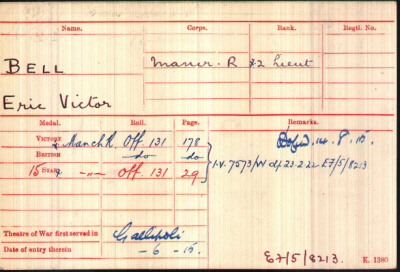 Name. Corps. Rank. Regtl. No.
BELL Mancr. R T2 Lieut
Eric Victor
Medal. Roll. Page. Remarks.
VICTORY & Manch R. Off. 131 178
BRITISH —do— do
15 STAR —"— Off. 131 29
14.8.15.
I.V. 7573/W d/ 23.2.22 E7/5/8213
Theatre of War first served in Gallipoli
Date of entry therein -6-15.
E7/5/8213. K. 1380